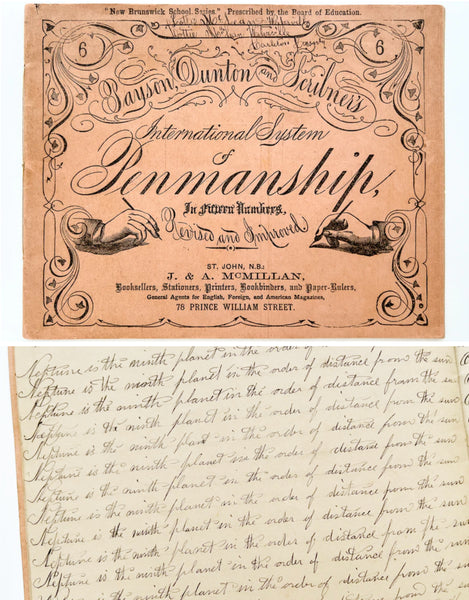 "New Brunswick School Series" Prescribed by the Board of Education.
6
6
Payson, Dunton and Scribner's
International System
of
Penmanship,
In Fifteen Numbers.
Revised and Improved
ST. JOHN, N.B.:
J. & A. McMILLAN,
Booksellers, Stationers, Printers, Bookbinders, and Paper-Rulers,
General Agents for English, Foreign, and American Magazines,
78 PRINCE WILLIAM STREET.
Neptune is the ninth planet in the order of
Neptune is the month planet in the order of distance from the sun
Neptune is the ninth planet in the order of distance from the sun
Neptune is the ninth planet in the order of distance from the sun
Neptune is the ninth planet in the order of distance from the sun
Neptune is the ninth planet in the order of distance from the sun
Neptune is the ninth planet in the order of distance from the sun
Neptune is the ninth planet in the order of distance from the sun
Neptune is the ninth planet in the order of distance from the sun
Neptune is the ninth planet in the order of distance from the sun
Neptune is the ninth planet in the order of distance from the sun
Neptune is the ninth planet in the order of distance from the sun
is the ninth planet in the order of distance from the